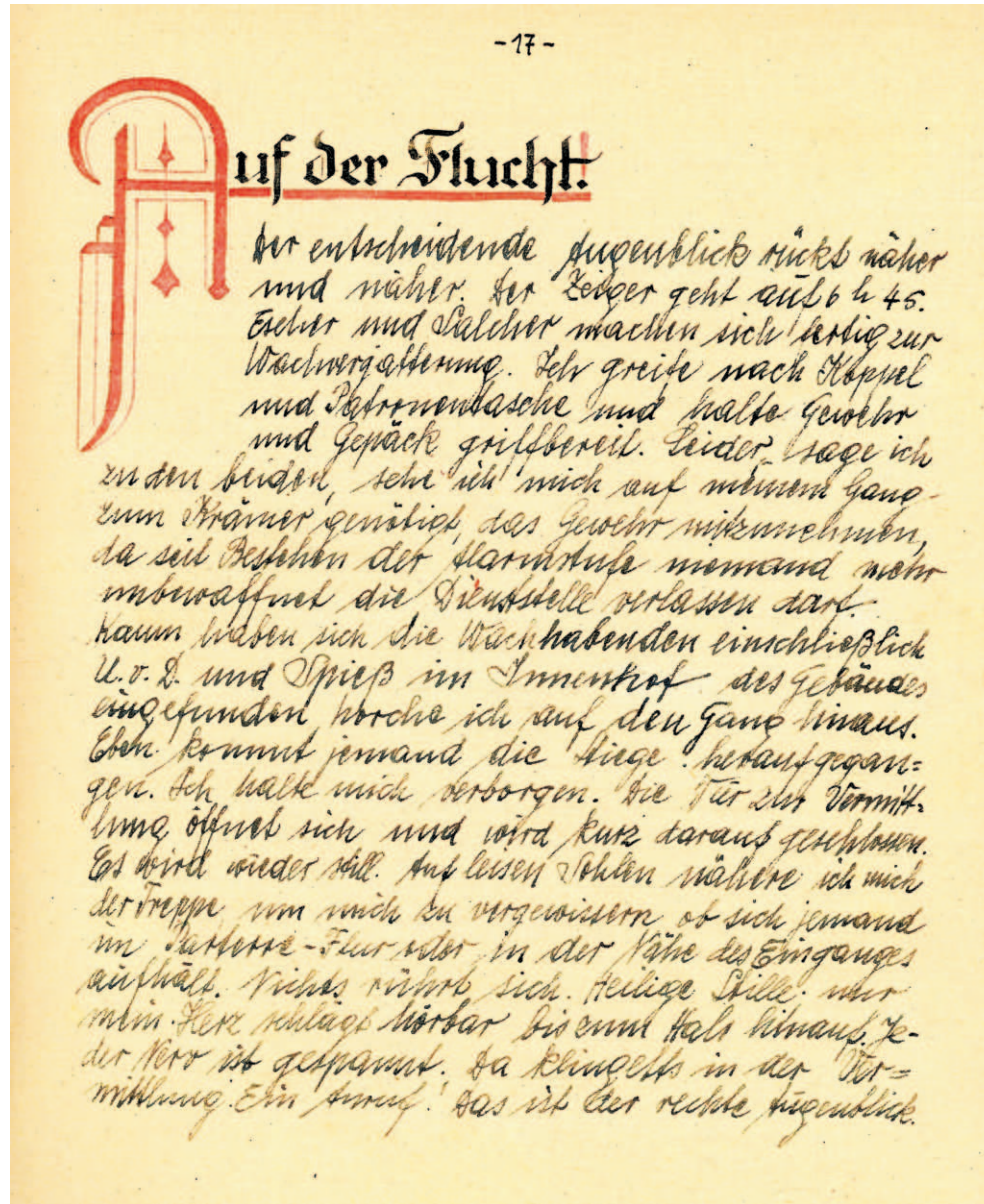 -17-
Auf der Flucht!
Der entscheidende Augenblick rückt näher
und näher. Der Zeiger geht auf 6 h 45.
Escher und Salcher machen sich fertig zur
Wachvergatterung. Ich greife nach Koppel
und Patronentasche und halte Gewehr
und Gepäck griffbereit. Leider, sage ich
zu den beiden, sehe ich mich auf meinem Gang
zum Krämer genötigt, das Gewehr mitzunehmen,
da seit Bestehen der Alarmstufe niemand mehr
unbewaffnet die Dienststelle verlassen darf.
Kaum haben sich die Wachhabenden einschließlich
U.v.D. und Spieß im Innenhof des Gebäudes
eingefunden horche ich auf den Gang hinaus.
Eben kommt jemand die Stiege heraufgegan=
gen. Ich halte mich verborgen. Die Tür zur Vermitt=
lung öffnet sich und wird kurz darauf geschlossen.
Es wird wieder still. Auf leisen Sohlen nähere ich mich
der Treppe um mich zu vergewissern ob sich jemand
im Parterre-Flur oder in der Nähe des Einganges
aufhält. Nichts rührt sich. Heilige Stille. nur
mein Herz schlägt hörbar bis zum Hals hinauf. Je-
der Nerv ist gespannt. Da klingelts in der Ver=
mittlung. Ein Anruf! Das ist der rechte Augenblick.